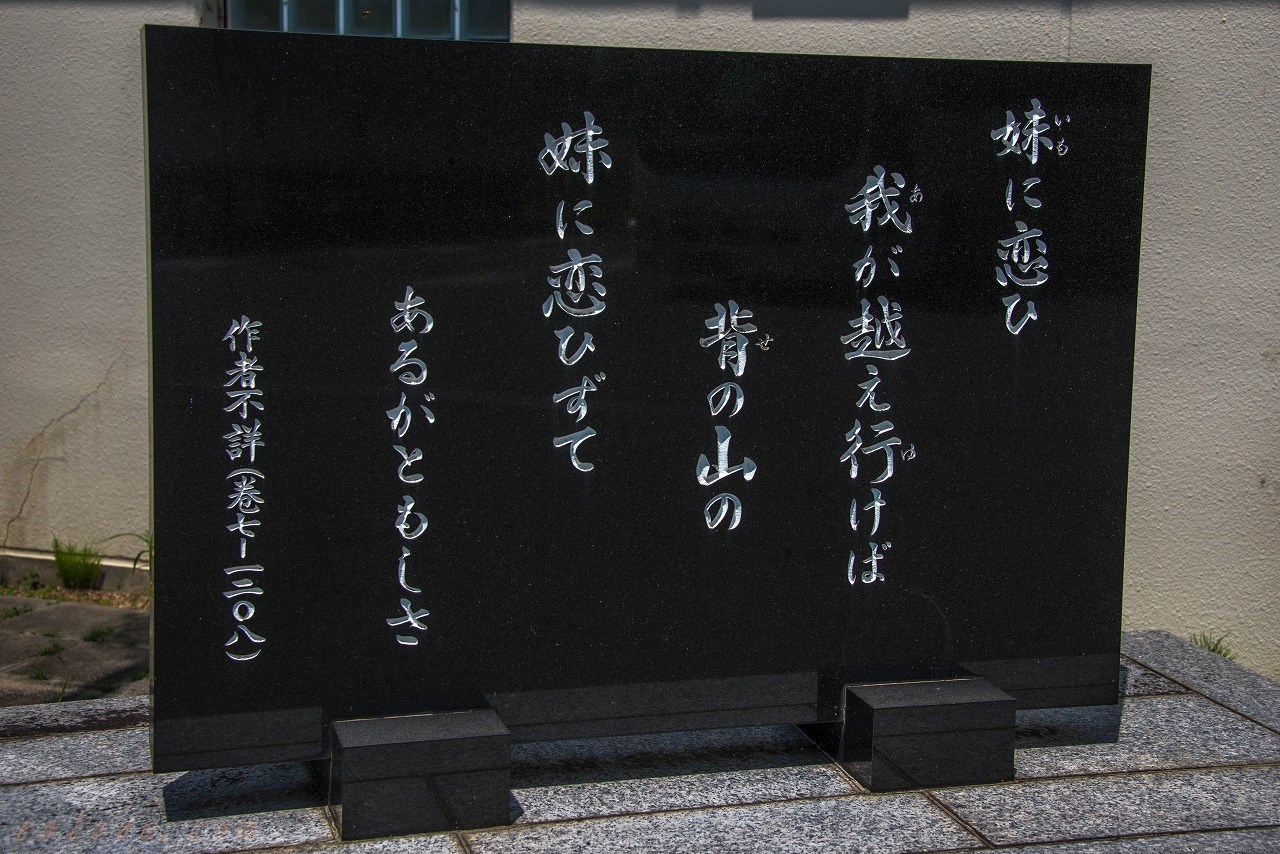 妹に恋ひ
我が越え行けば
背の山の
妹に恋ひずて
あるがともしさ
作者不詳(巻七ー一二〇八)
いも
あ
ゆ
せ